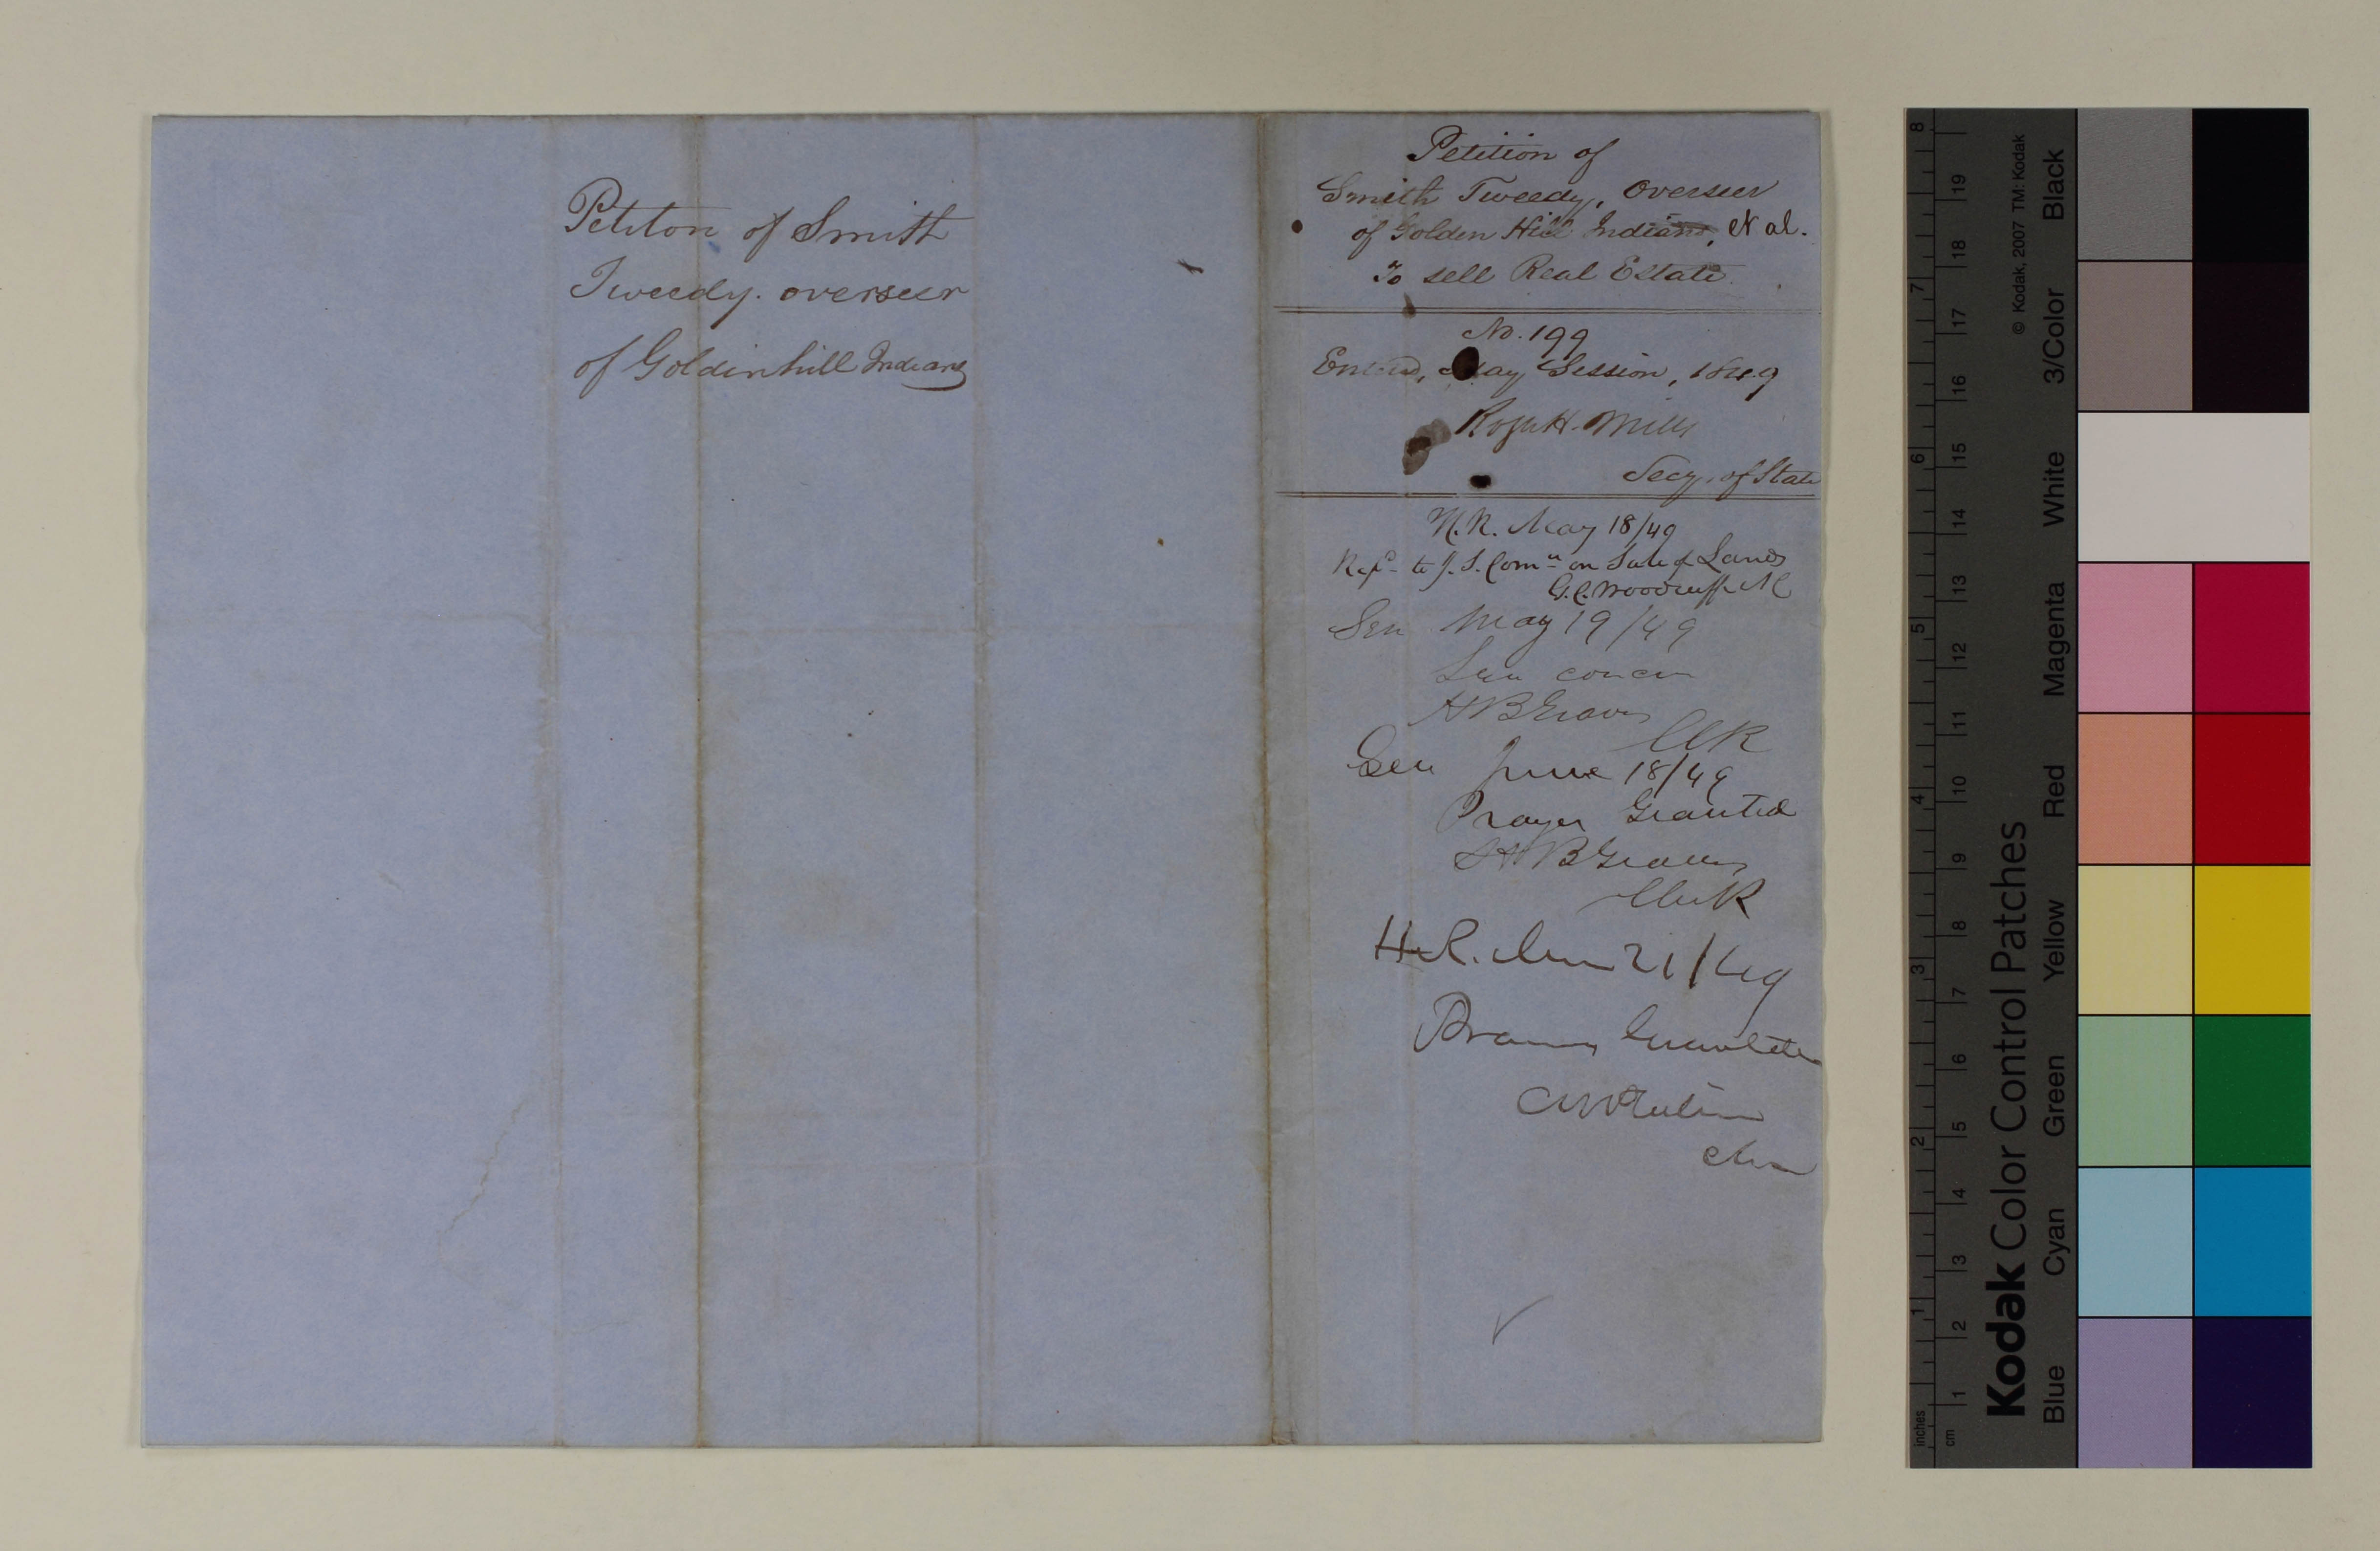 Petiton of Smith
Tweedy. overseer
of Goldinhill Indians
Petition of
Smith Tweedy, Overseer
of Golden Hill Indians, et al.
To sell Real Estate.
No. 199
Entered, May Session, 1849
Roger H. Mills
Secy. of State
H.R. May 18/49
Refd to J. S. Comee on Sale of Lands
G. C. Woodruff Cl
Sen May 19/49
Sen concur
H B Graves
Clk
Sen June 18/49
Prayer Granted
H B Graves
Clerk
H.R. June 21/49
Prayer Granted
Clk
© Kodak, 2007 TM: Kodak
Kodak Color Control Patches
Blue Cyan Green Yellow Red Magenta White 3/Color Black
inches 1 2 3 4 5 6 7 8
cm 1 2 3 4 5 6 7 8 9 10 11 12 13 14 15 16 17 18 19